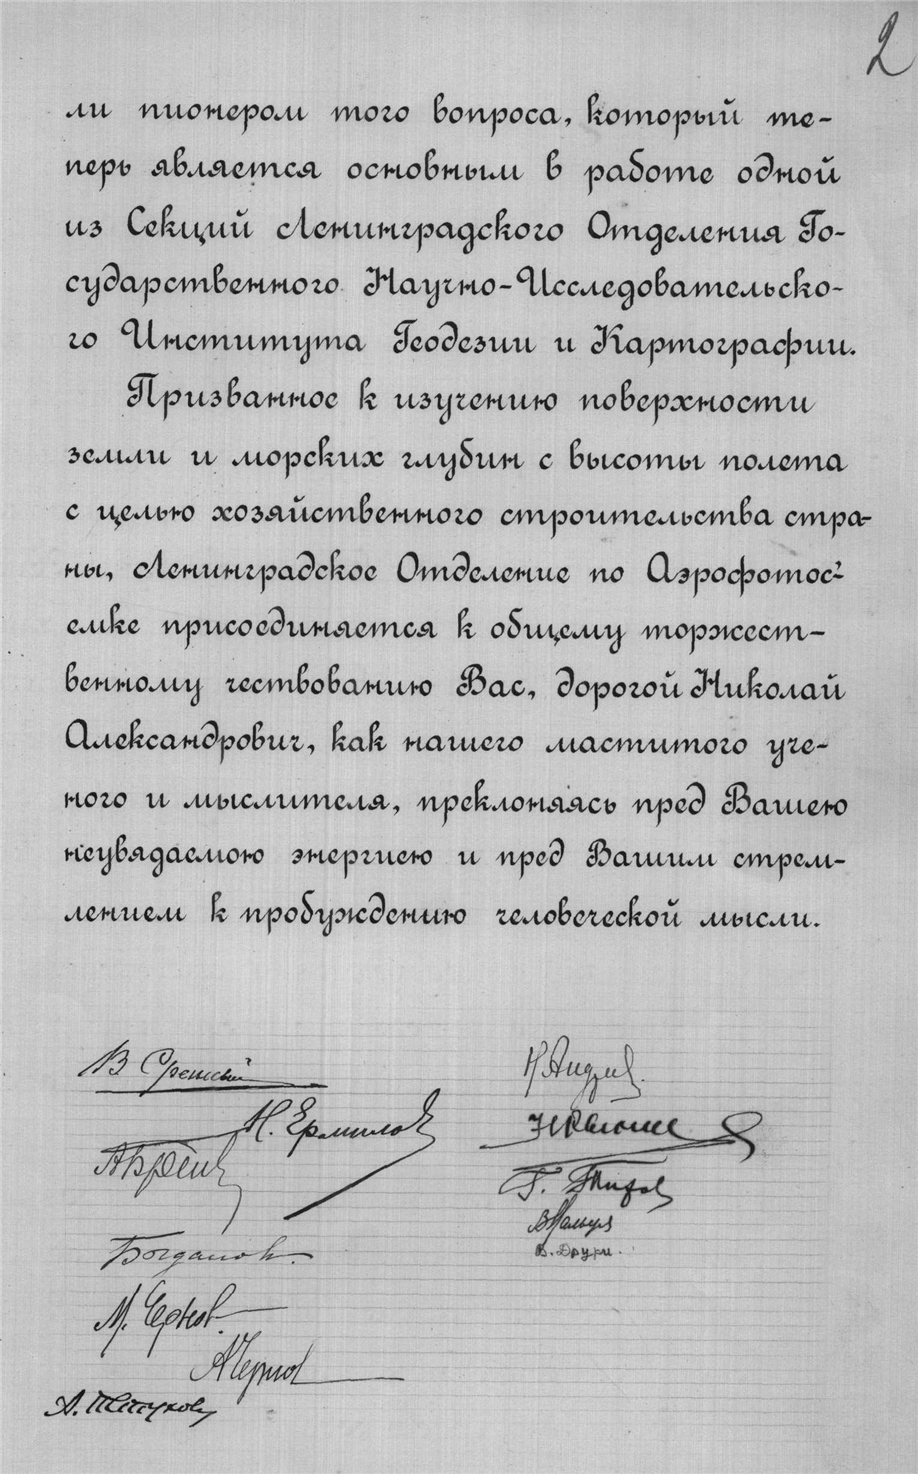 2
ли пионером того вопроса, который те-
перь является основным в работе одной
из Секций Ленинградского Отделения Го-
сударственного Научно-Исследовательско-
го Института Геодезии и Картографии.
Призванное к изучению поверхности
земли и морских глубин с высоты полета
с целью хозяйственного строительства стра-
ны, Ленинградское Отделение по Аэрофотос'-
емке присоединяется к общему торжест-
венному чествованию Вас, дорогой Николай
Александрович, как нашего маститого уче-
ного и мыслителя, преклоняясь пред Вашею
неувядаемою энергиею и пред Вашим стрем-
лением к пробуждению человеческой мысли.
В
Н. Ермилов
Богданов
М.
А
А. Петухов
Г. Титов
В. Друри.